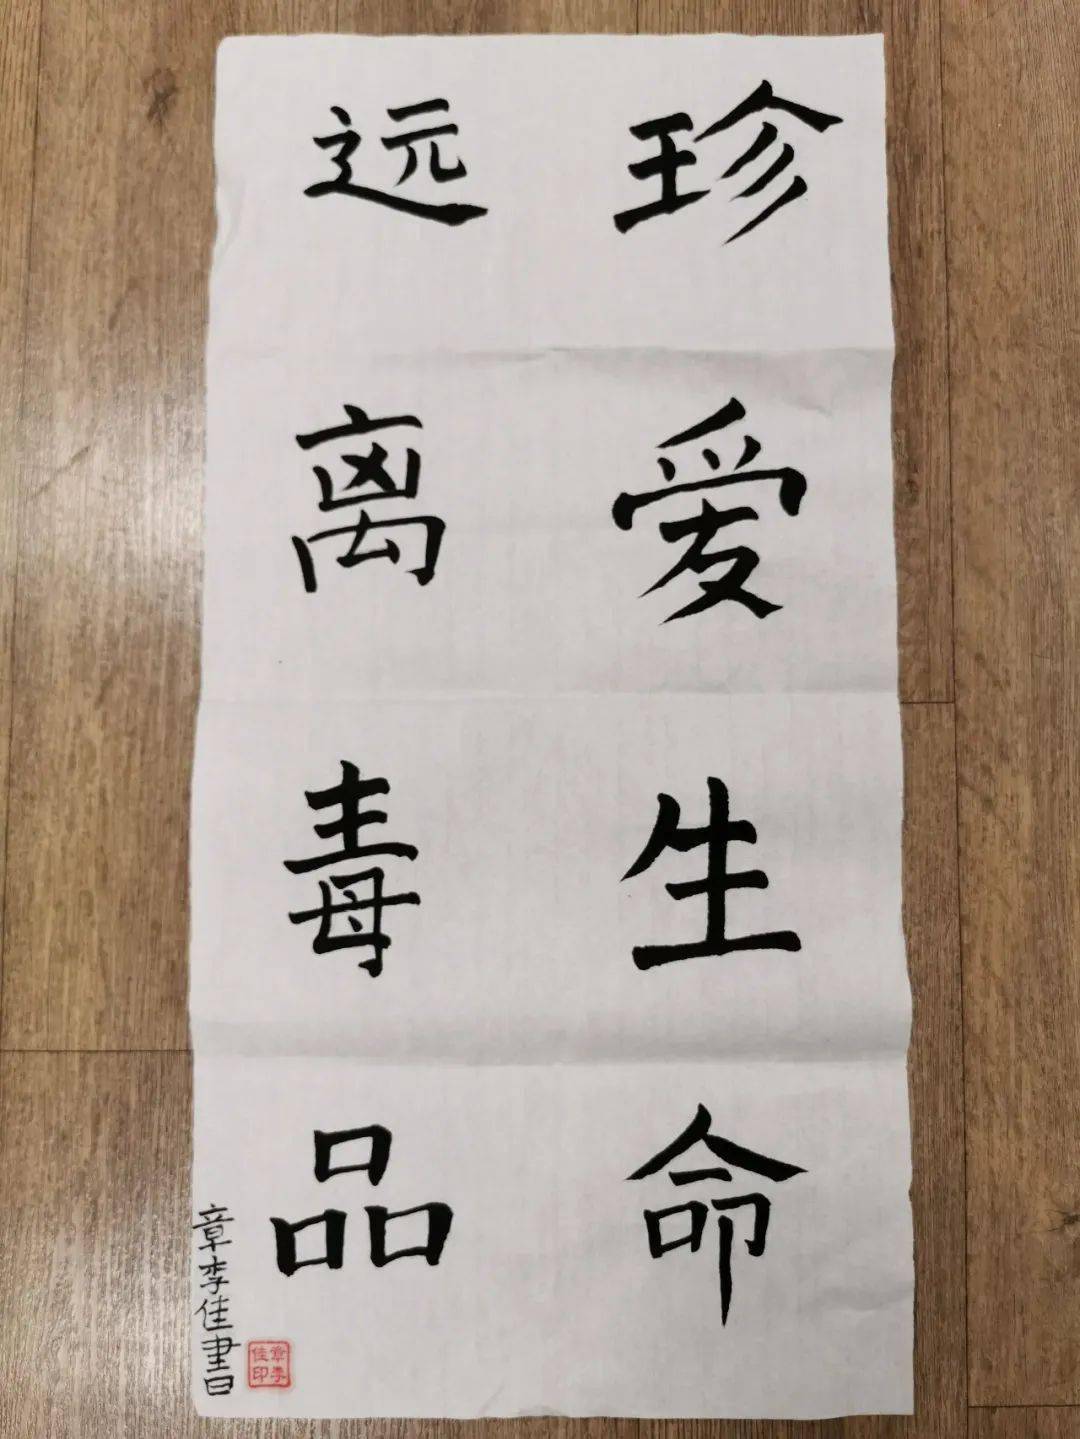 珍爱生命
远离毒品
章李佳書
章李佳印